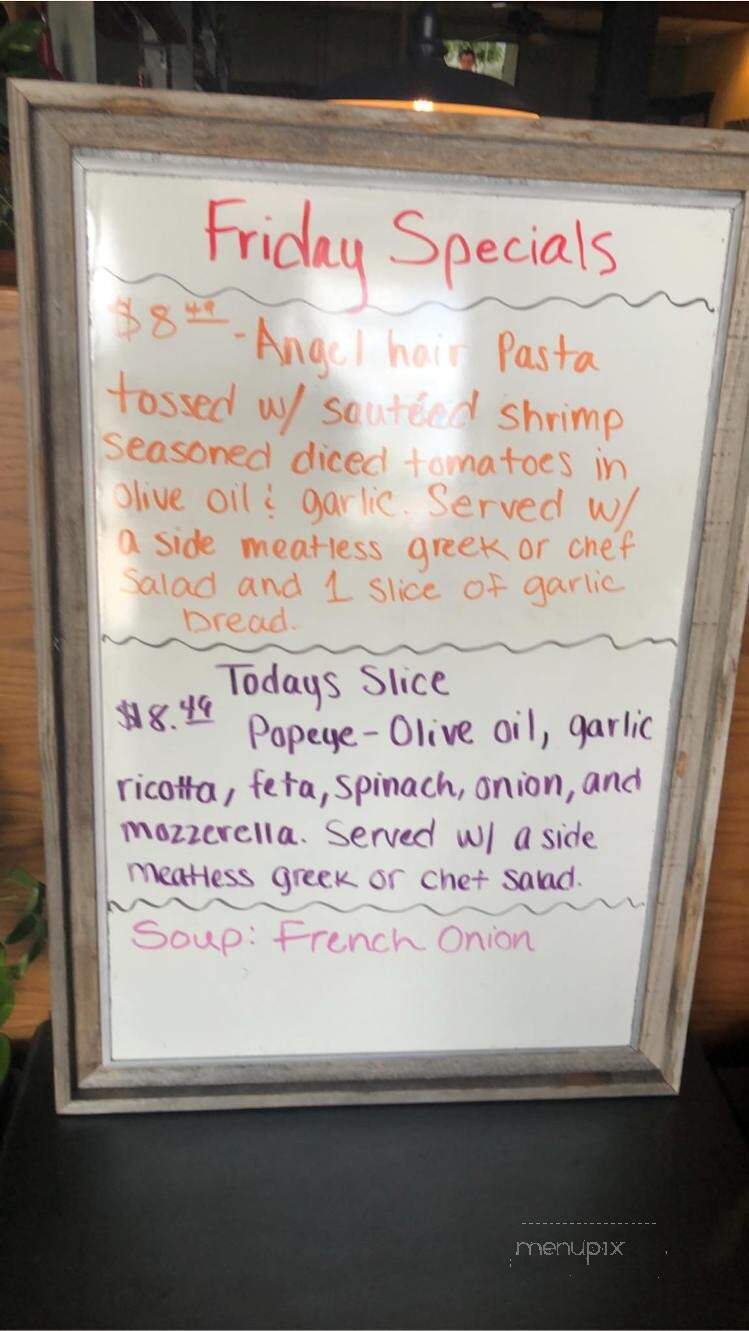 Friday Specials
$8 49 - Angel hair Pasta
tossed w/ sautéed shrimp
seasoned diced tomatoes in
olive oil & garlic. Served w/
a side meatless greek or chef
salad and 1 slice of garlic
bread.
Todays Slice
$8.49 Popeye - Olive oil, garlic
ricotta, feta, spinach, onion, and
mozzerella. Served w/ a side
meatless greek or chef salad.
Soup: French Onion
menupix